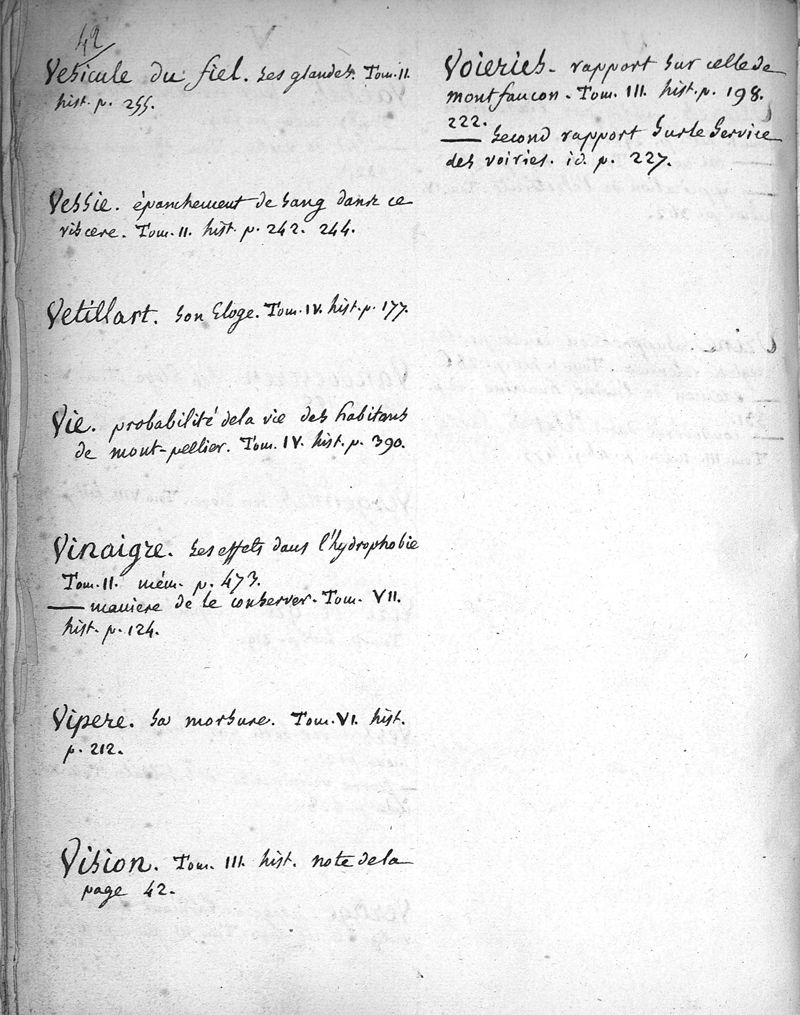 42
Vesicule du fiel. ses glandes. Tom. II.
hist. p. 255.
Vessie. épanchement de sang dans ce
viscere. Tom. II. hist. p. 242. 244.
Vetillart. son Eloge. Tom. IV. hist. p. 177.
Vie. probabilité de la vie des habitans
de mont-pellier. Tom. IV. hist. p. 390.
Vinaigre. ses effets dans l'hydrophobie
Tom. II. mém. p. 473.
— maniere de le conserver. Tom. VII.
hist. p. 124.
Vipere. sa morsure. Tom. VI. hist.
p. 212.
Vision. Tom. III. hist. note de la
page 42.
Voieries. rapport sur celle de
montfaucon. Tom. III. hist. p. 198.
222.
— second rapport sur le service
des voiries. id. p. 227.